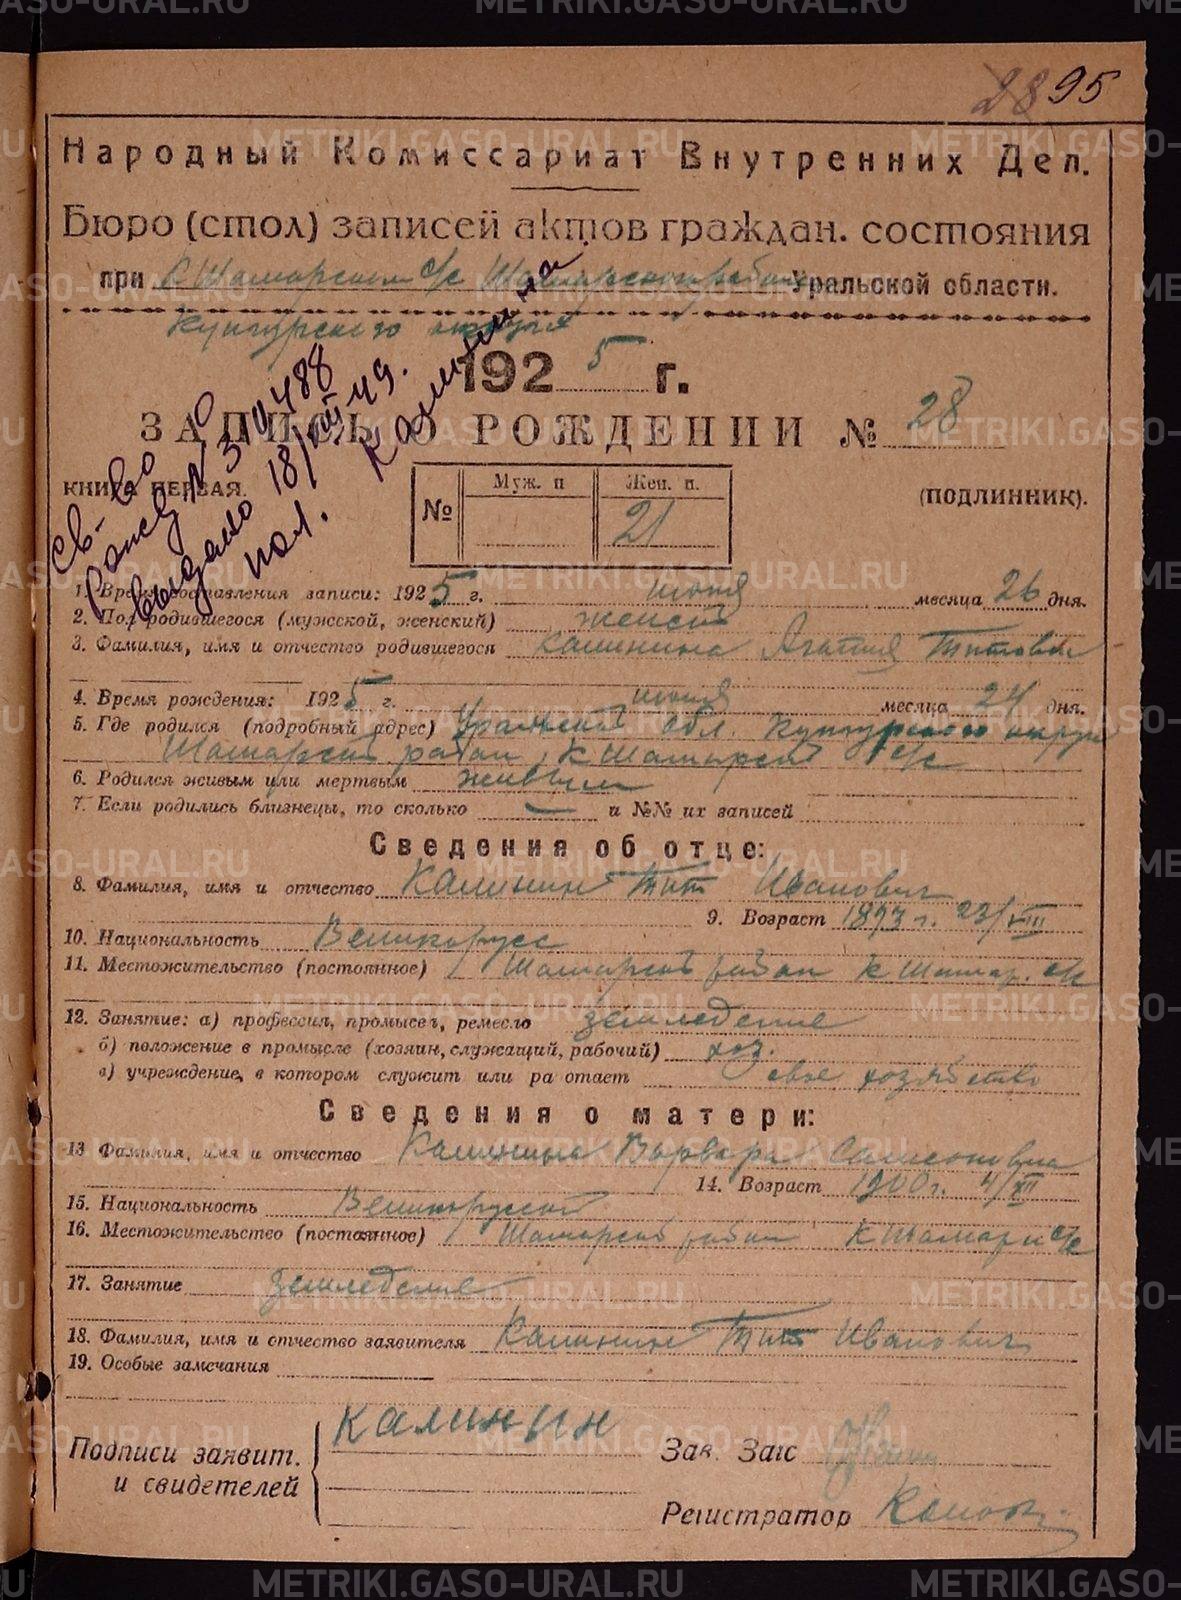 2895
Народный Комиссариат Внутренних Дел.
Бюро (стол) записей актов граждан. состояния
при К Шамарском с/с Шамарского района Уральской области.
Кунгурского округа
1925 г.
ЗАПИСЬ О РОЖДЕНИИ № 28
св-во о
рожд № 30488
выдано 18/VIII 49.
пол. Калинина
КНИГА ПЕРВАЯ.
(ПОДЛИННИК).
№ Муж. п Жен. п.
21
1. Время составления записи: 1925 г. июня месяца 26 дня.
2. Пол родившегося (мужской, женский) женский
3. Фамилия, имя и отчество родившегося Калинина Агапия Титовна
4. Время рождения: 1925 г. июня месяца 24 дня.
5. Где родился (подробный адрес) Уральской обл. Кунгурского округа
Шамарский район, К Шамарский с/с
6. Родился живым или мертвым живым
7. Если родились близнецы, то сколько — и №№ их записей
Сведения об отце:
8. Фамилия, имя и отчество Калинин Тит Иванович
9. Возраст 1893 г. 23/VIII
10. Национальность Великорусс
11. Местожительство (постоянное) Шамарский район К Шамар. с/с
12. Занятие: а) профессия, промысел, ремесло земледелие
б) положение в промысле (хозяин, служащий, рабочий) хоз.
в) учреждение, в котором служит или ра отает свое хозяйство
Сведения о матери:
13 Фамилия, имя и отчество Калинина Варвара Самсоновна
14. Возраст 1900 г. 4/XII
15. Национальность Великорусской
16. Местожительство (постоянное) Шамарский район К Шамары с/с
17. Занятие земледелие
18. Фамилия, имя и отчество заявителя Калинин Тит Иванович
19. Особые замечания
Подписи заявит.
и свидетелей
Калинин
Зав. Загс
Регистратор
METRIKI.GASO-URAL.RU